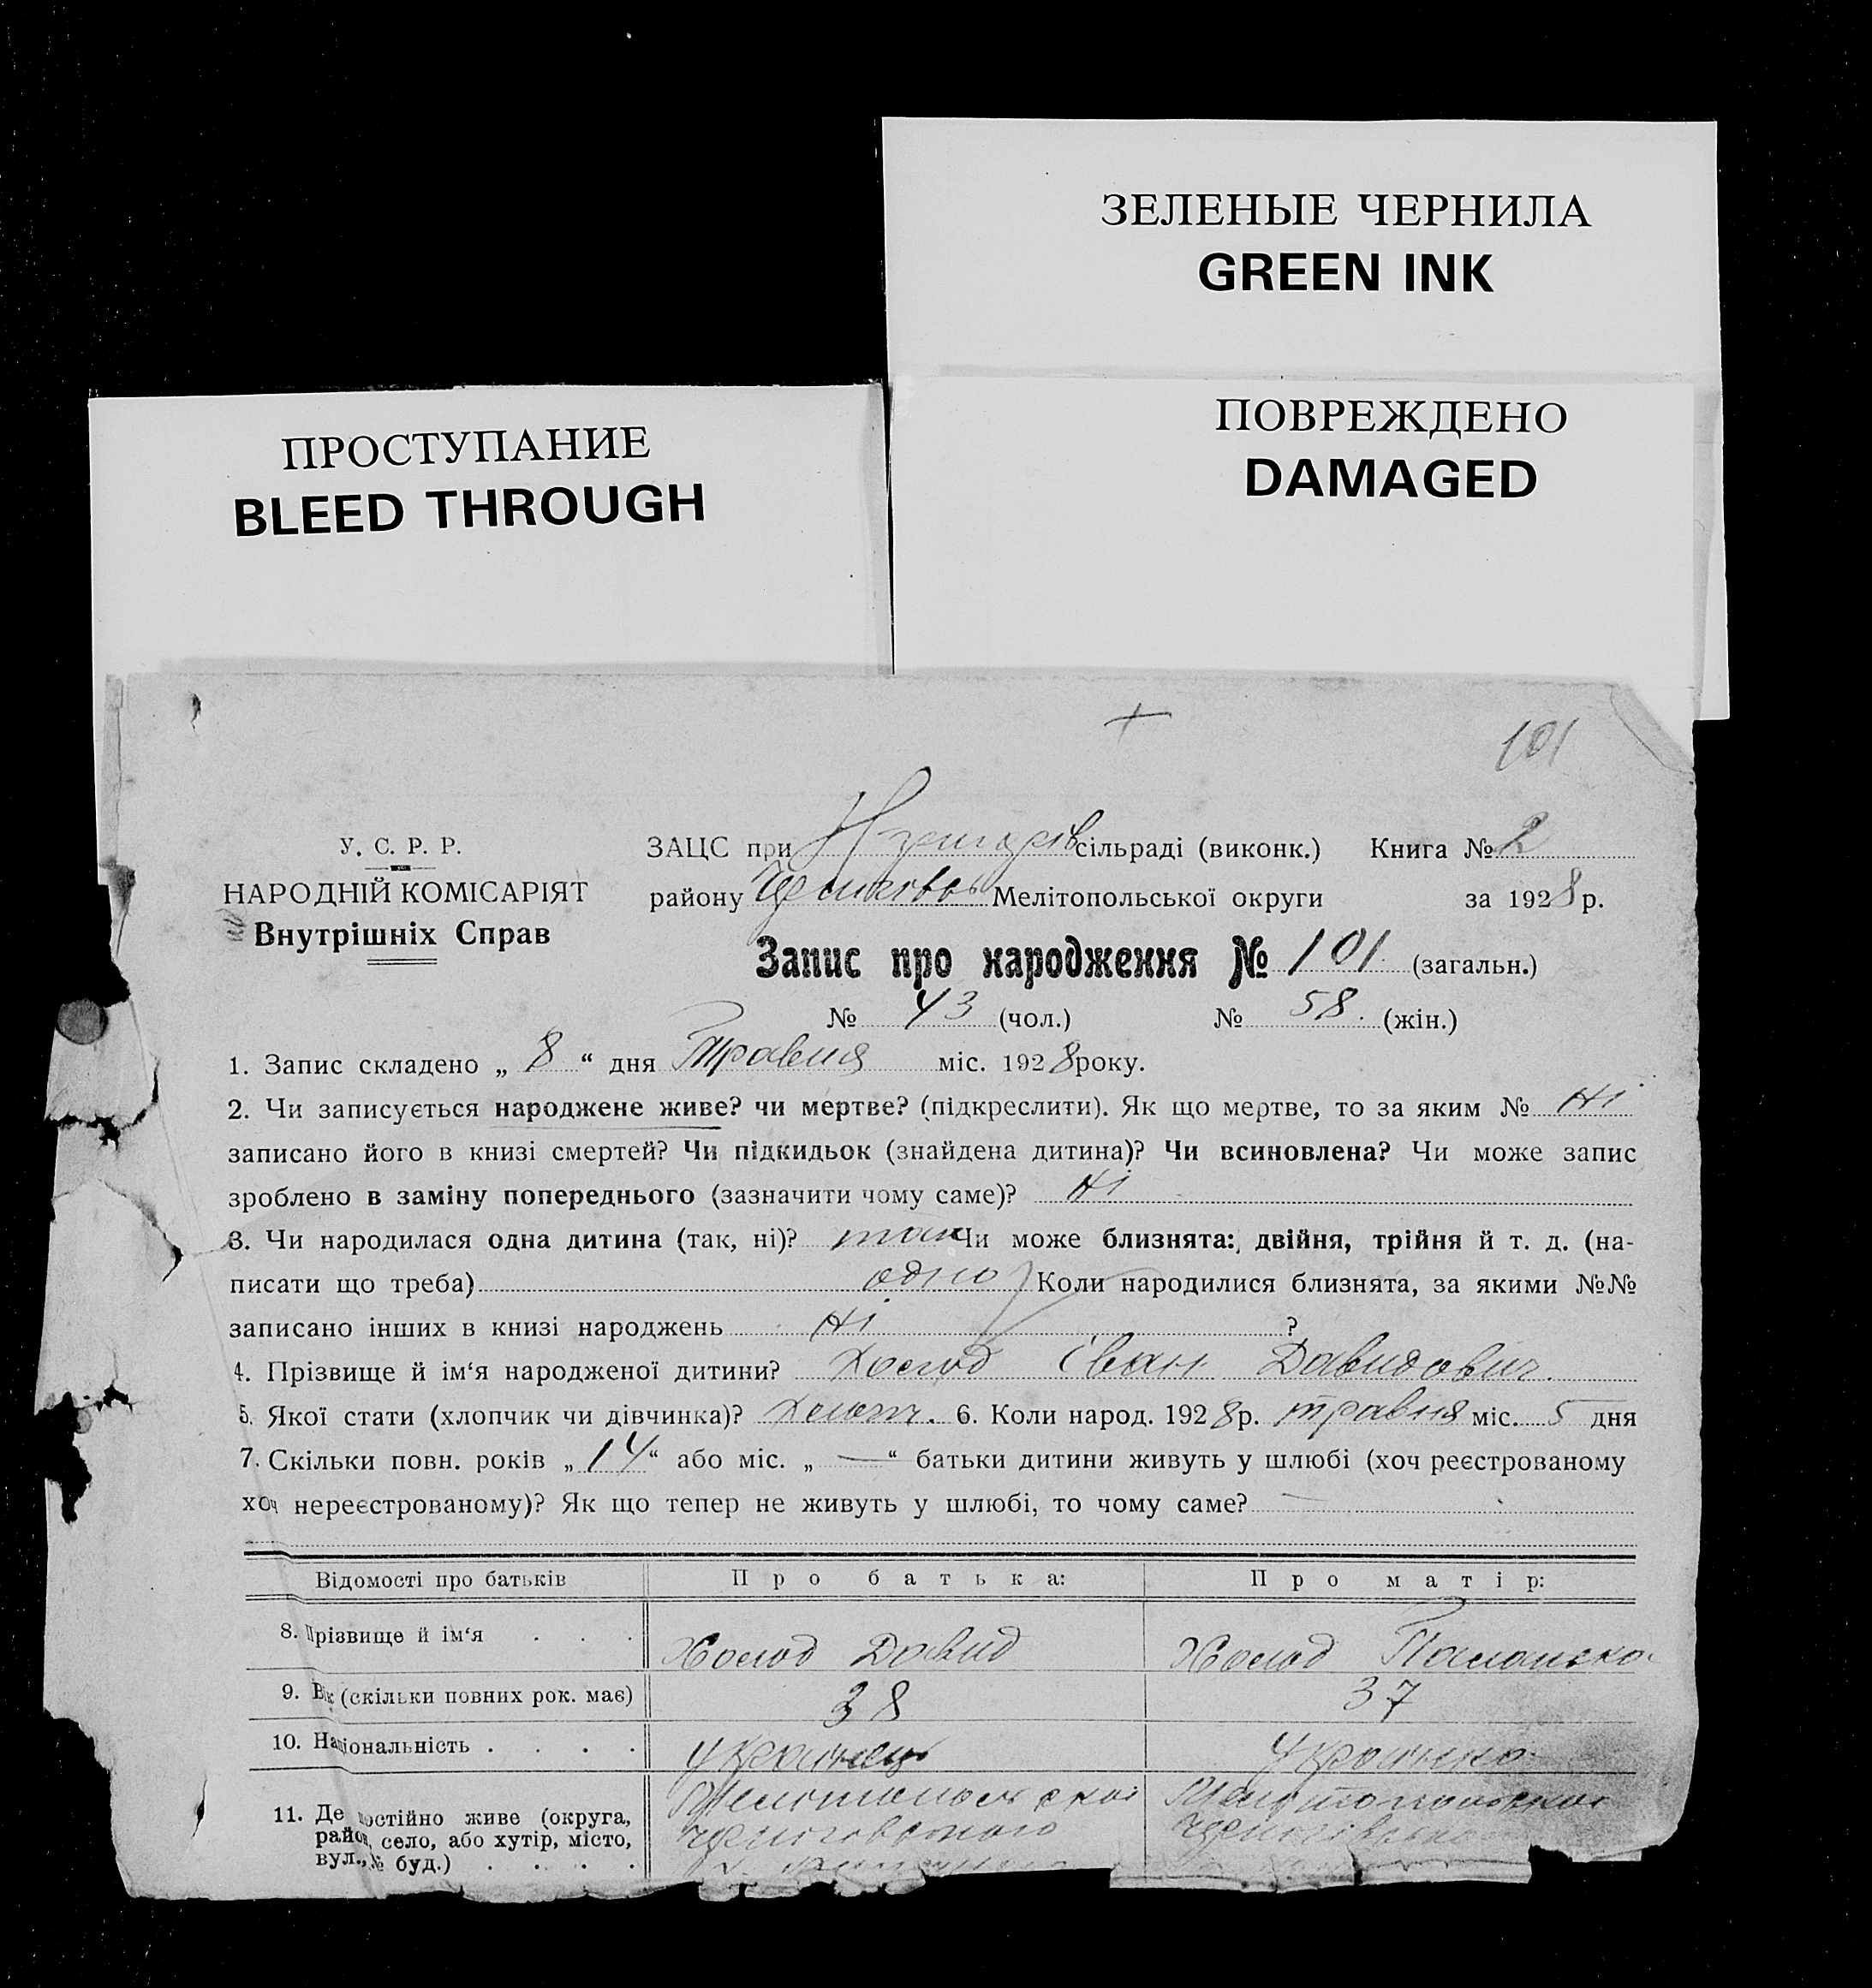 ЗЕЛЕНЫЕ ЧЕРНИЛА
GREEN INK
ПРОСТУПАНИЕ
BLEED THROUGH
ПОВРЕЖДЕНО
DAMAGED
101
У. С. Р. Р.
НАРОДНІЙ КОМІСАРІЯТ
Внутрішніх Справ
ЗАЦС при сільраді (виконк.) Книга № 2
району Мелітопольської округи за 1928 р.
Запис про народження № 101 (загальн.)
№ 43 (чол.) № 58. (жін.)
1. Запис складено „ 8 “ дня Травня міс. 1928 року.
2. Чи записується народжене живе? чи мертве? (підкреслити). Як що мертве, то за яким № Ні
записано його в книзі смертей? Чи підкидьок (знайдена дитина)? Чи всиновлена? Чи може запис
зроблено в заміну попереднього (зазначити чому саме)? Ні
3. Чи народилася одна дитина (так, ні)? так Чи може близнята: двійня, трійня й т. д. (на-
писати що треба) одно Коли народилися близнята, за якими №№
записано інших в книзі народжень Ні ?
4. Прізвище й ім‘я народженої дитини? Холод Іван Давидович.
5. Якої стати (хлопчик чи дівчинка)? Хлопч. 6. Коли народ. 1928 р. травня міс. 5 дня
7. Скільки повн. років „ 14 “ або міс. „ — “ батьки дитини живуть у шлюбі (хоч реєстрованому
хоч нереєстрованому)? Як що тепер не живуть у шлюбі, то чому саме? —
Відомості про батьків Про батька: Про матір:
8. Прізвище й ім‘я . . . Холод Давид Холод
9. Вік (скільки повних рок. має) 38 37
10. Національність . . . . Українець Українка
11. Де постійно живе (округа, Мелітопольської Мелітопольської
район, село, або хутір, місто,
вул., № буд.) . . . .